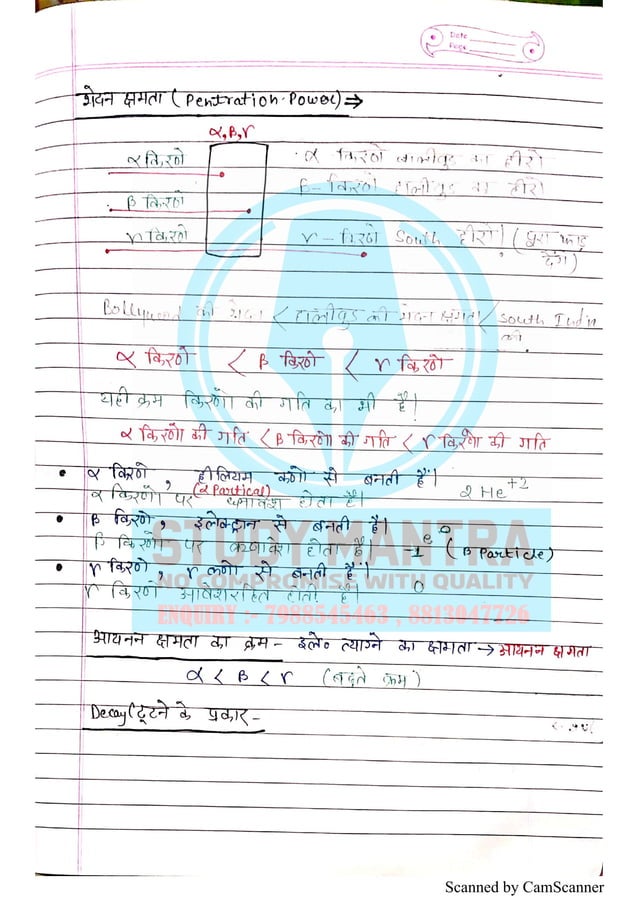 Date
Page
भेदन क्षमता (Pentration-Power) ⇒
α, β, γ
α किरणे
α किरणे बालीवुड का हीरो
β किरणे
β- किरणे हालीवुड का हीरो
γ किरणे
γ- किरणे South हीरो! (पूरा फाड़ देंगे)
Bollywood की भेदन < हालीवुड की भेदन क्षमता < South Indi'n की
α किरणे < β किरणे < γ किरणे
यही क्रम किरणों की गति का भी है!
α किरणों की गति < β किरणों की गति < γ किरणों की गति
• α किरणे, हीलियम कणो से बनती हैं।
(α Partical)
α किरणों पर धनावेश होता है। 2He+2
• β किरणे, इलेक्ट्रान से बनती हैं।
β किरणों पर ऋणावेश होता है। -1e0 (β Particle)
• γ किरणे, γ कणो से बनती हैं।
γ किरणे आवेशरहित होता है। 0
STUDY MANTRA
NO COMPROMISE WITH QUALITY
ENQUIRY :- 7988545463 , 8813047726
आयनन क्षमता का क्रम - इले० त्याग्ने का क्षमता → आयनन क्षमता
α < β < γ (बढ़ते क्रम)
Decay (टूटने के प्रकार -
Scanned by CamScanner